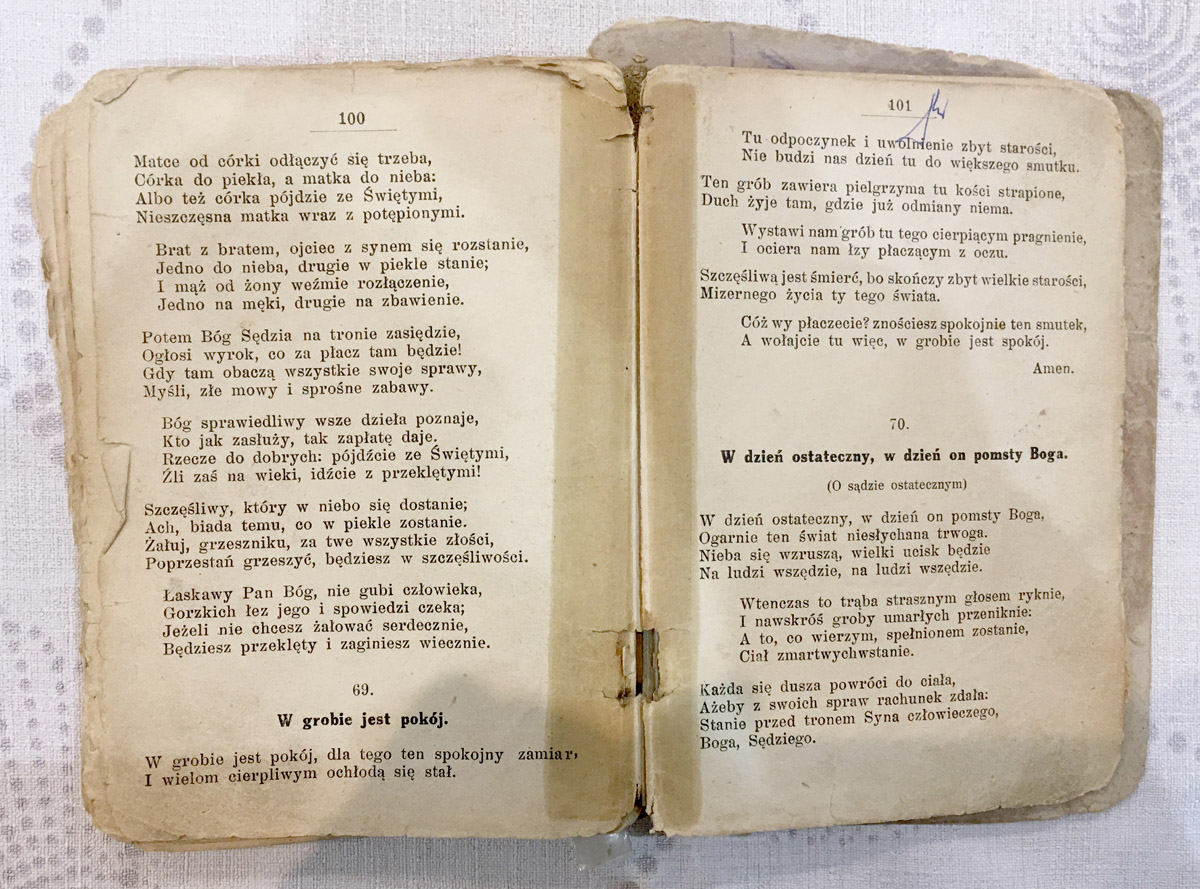 100
Matce od córki odłączyć się trzeba,
Córka do piekła, a matka do nieba:
Albo też córka pójdzie ze Świętymi,
Nieszczęsna matka wraz z potępionymi.
Brat z bratem, ojciec z synem się rozstanie,
Jedno do nieba, drugie w piekle stanie;
I mąż od żony weźmie rozłączenie,
Jedno na męki, drugie na zbawienie.
Potem Bóg Sędzia na tronie zasiędzie,
Ogłosi wyrok, co za płacz tam będzie!
Gdy tam obaczą wszystkie swoje sprawy,
Myśli, złe mowy i sprośne zabawy.
Bóg sprawiedliwy wsze dzieła poznaje,
Kto jak zasłuży, tak zapłatę daje.
Rzecze do dobrych: pójdźcie ze Świętymi,
Źli zaś na wieki, idźcie z przeklętymi!
Szczęśliwy, który w niebo się dostanie;
Ach, biada temu, co w piekle zostanie.
Żałuj, grzeszniku, za twe wszystkie złości,
Poprzestań grzeszyć, będziesz w szczęśliwości.
Łaskawy Pan Bóg, nie gubi człowieka,
Gorzkich łez jego i spowiedzi czeka;
Jeżeli nie chcesz żałować serdecznie,
Będziesz przeklęty i zaginiesz wiecznie.
69.
W grobie jest pokój.
W grobie jest pokój, dla tego ten spokojny zamiar,
I wielom cierpliwym ochłodą się stał.
101
Tu odpoczynek i uwolnienie zbyt starości,
Nie budzi nas dzień tu do większego smutku.
Ten grób zawiera pielgrzyma tu kości strapione,
Duch żyje tam, gdzie już odmiany niema.
Wystawi nam grób tu tego cierpiącym pragnienie,
I ociera nam łzy płaczącym z oczu.
Szczęśliwą jest śmierć, bo skończy zbyt wielkie starości,
Mizernego życia ty tego świata.
Cóż wy płaczecie? znościesz spokojnie ten smutek,
A wołajcie tu więc, w grobie jest spokój.
Amen.
70.
W dzień ostateczny, w dzień on pomsty Boga.
(O sądzie ostatecznym)
W dzień ostateczny, w dzień on pomsty Boga,
Ogarnie ten świat niesłychana trwoga.
Nieba się wzruszą, wielki ucisk będzie
Na ludzi wszędzie, na ludzi wszędzie.
Wtenczas to trąba strasznym głosem ryknie,
I nawskróś groby umarłych przeniknie:
A to, co wierzym, spełnionem zostanie,
Ciał zmartwychwstanie.
Każda się dusza powróci do ciała,
Ażeby z swoich spraw rachunek zdała:
Stanie przed tronem Syna człowieczego,
Boga, Sędziego.